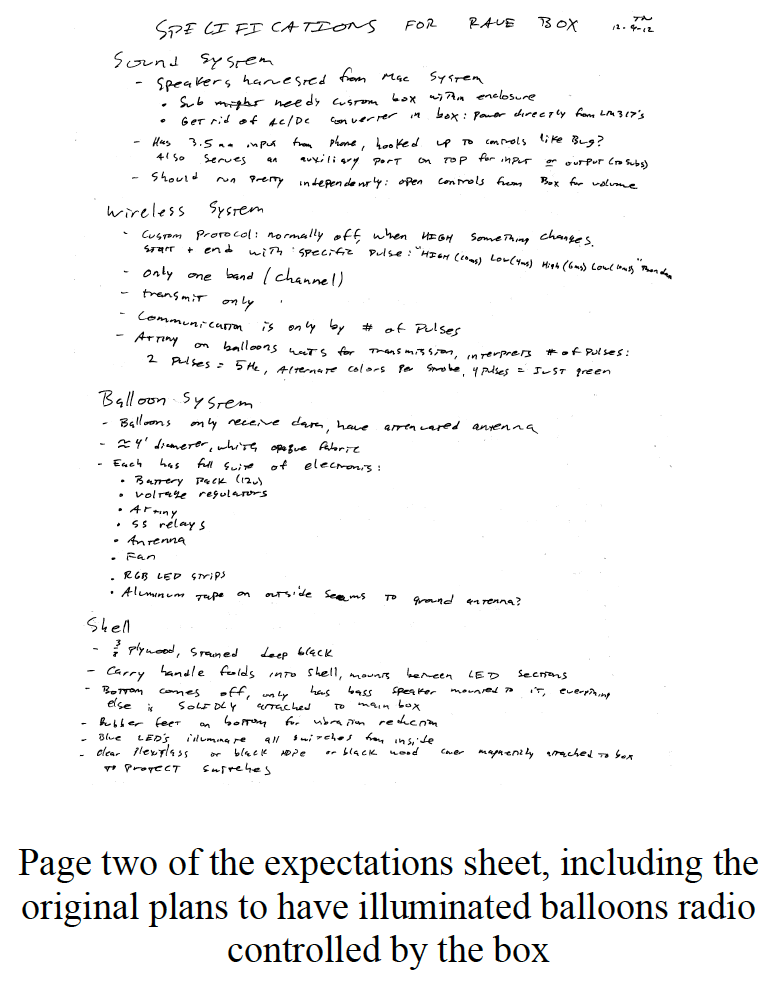 SPECIFICATIONS FOR RAVE BOX 12-9-12
Sound System
- Speakers harvested from Mac System
• Sub might needs custom box within enclosure
• Get rid of AC/DC converter in box: power directly from LM317's
- Has 3.5mm input from phone, hooked up to controls like Bug?
Also serves as auxiliary port on top for input or output (to subs)
- Should run pretty independently: open controls from Box for volume
Wireless System
- Custom Protocol: normally off, when HIGH something changes.
Start + end with specific pulse: "HIGH (10ms) Low (4ms) High (6ms) Low (10ms)"
- only one band / (channel)
- transmit only
- Communication is only by # of Pulses
- ATtiny on balloons waits for transmission, interprets # of Pulses:
2 Pulses = 5Hz, Alternate colors per strobe, 4 pulses = Just green
Balloon System
- Balloons only receive data, have attenuated antenna
- ≈ 4' diameter, white opaque fabric
- Each has full suite of electronis:
• Battery pack (12v)
• voltage regulators
• ATtiny
• SS relays
• Antenna
• Fan
• RGB LED strips
• Aluminum tape on outside seams to ground antenna?
Shell
- Plywood, stained deep black
- Carry handle folds into shell, mounts between LED sections
- Bottom comes off, only has bass speaker mounted to it, everything
else is SOLIDLY attached to main box
- Rubber feet on bottom for vibration reduction
- Blue LED's illuminate all switches from inside
- Clear Plexiglass or black HDPE or black wood cover magnetically attached to box
to PROTECT switches
Page two of the expectations sheet, including the
original plans to have illuminated balloons radio
controlled by the box